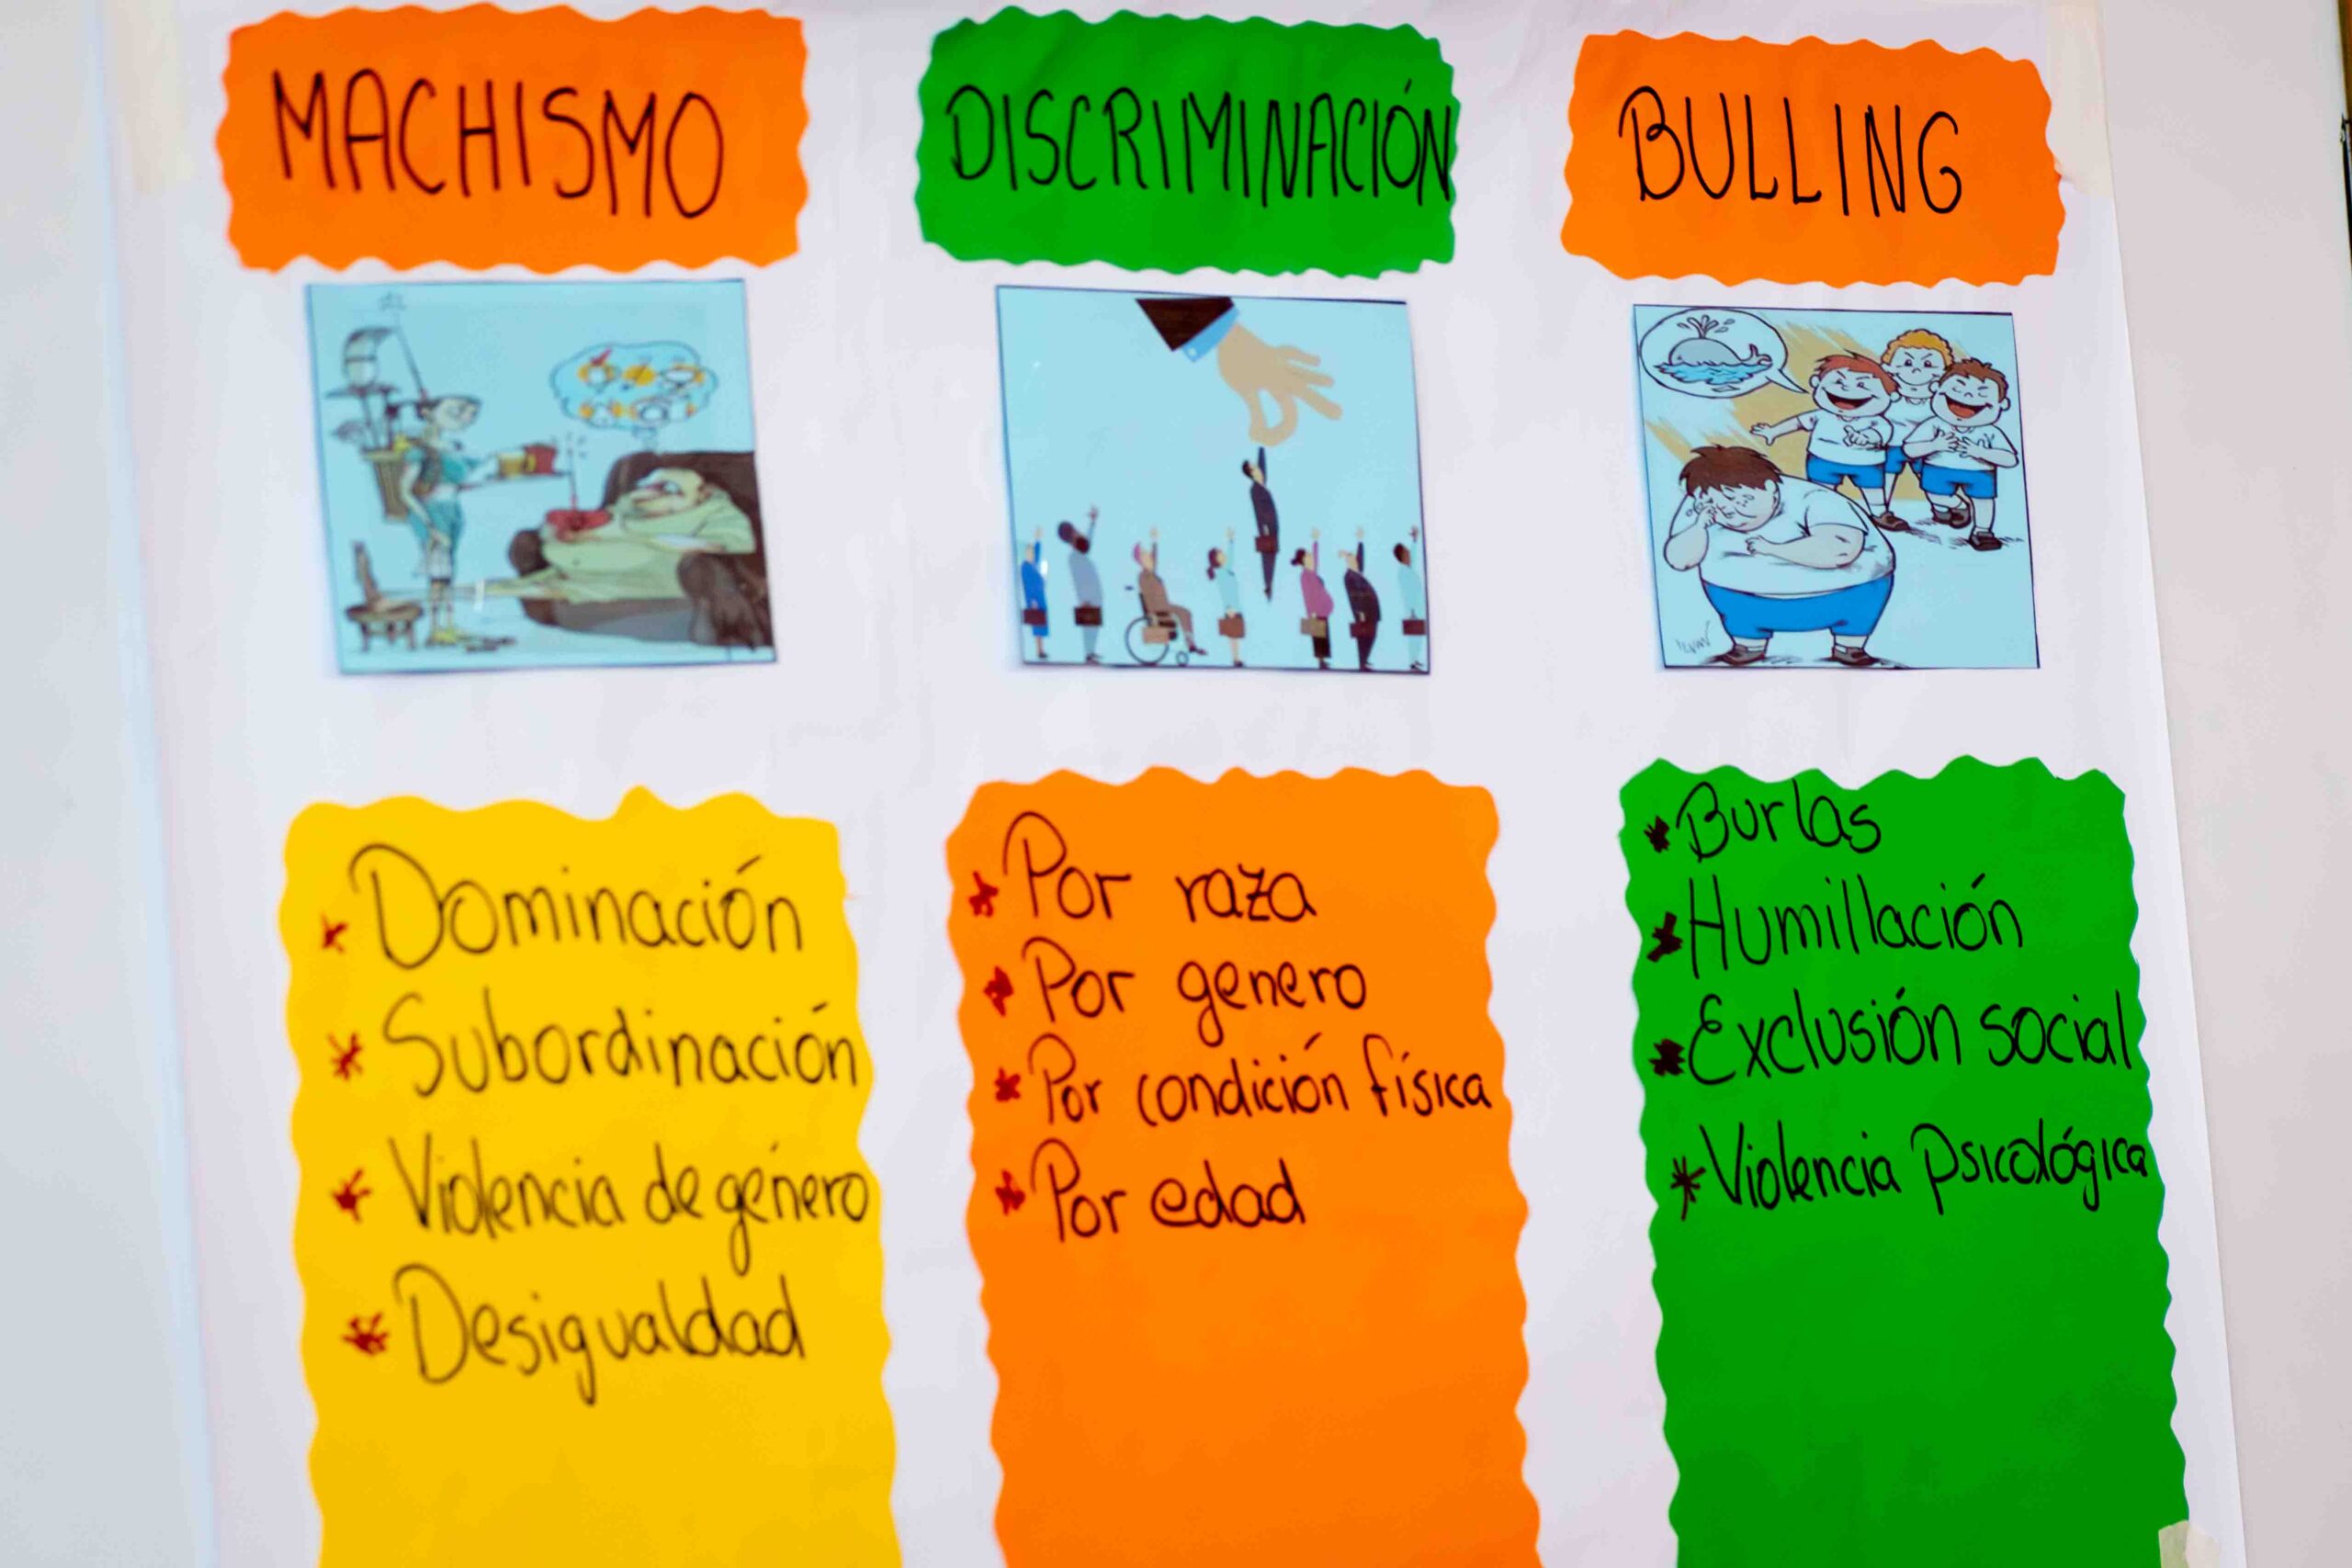 MACHISMO
DISCRIMINACIÓN
BULLING
Dominación
Subordinación
Violencia de género
Desigualdad
Por raza
Por genero
Por condición física
Por edad
Burlas
Humillación
Exclusión social
Violencia Psicológica